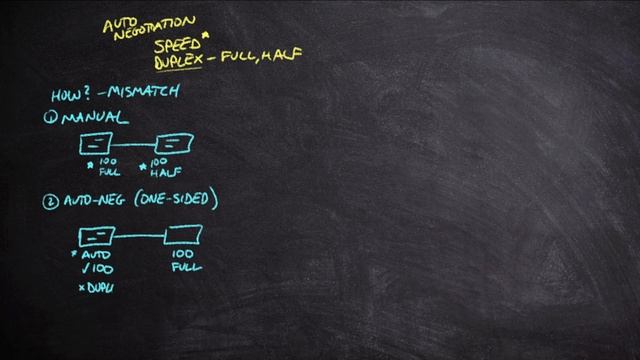 AUTO
NEGOTIATION
SPEED*
DUPLEX - FULL, HALF
HOW? - MISMATCH
① MANUAL
* 100
FULL
* 100
HALF
② AUTO-NEG (ONE-SIDED)
* AUTO
√100
x DUPL
100
FULL